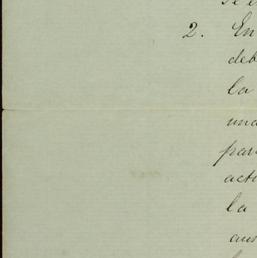 2. En
deb
la
una
par
acti
la
aun